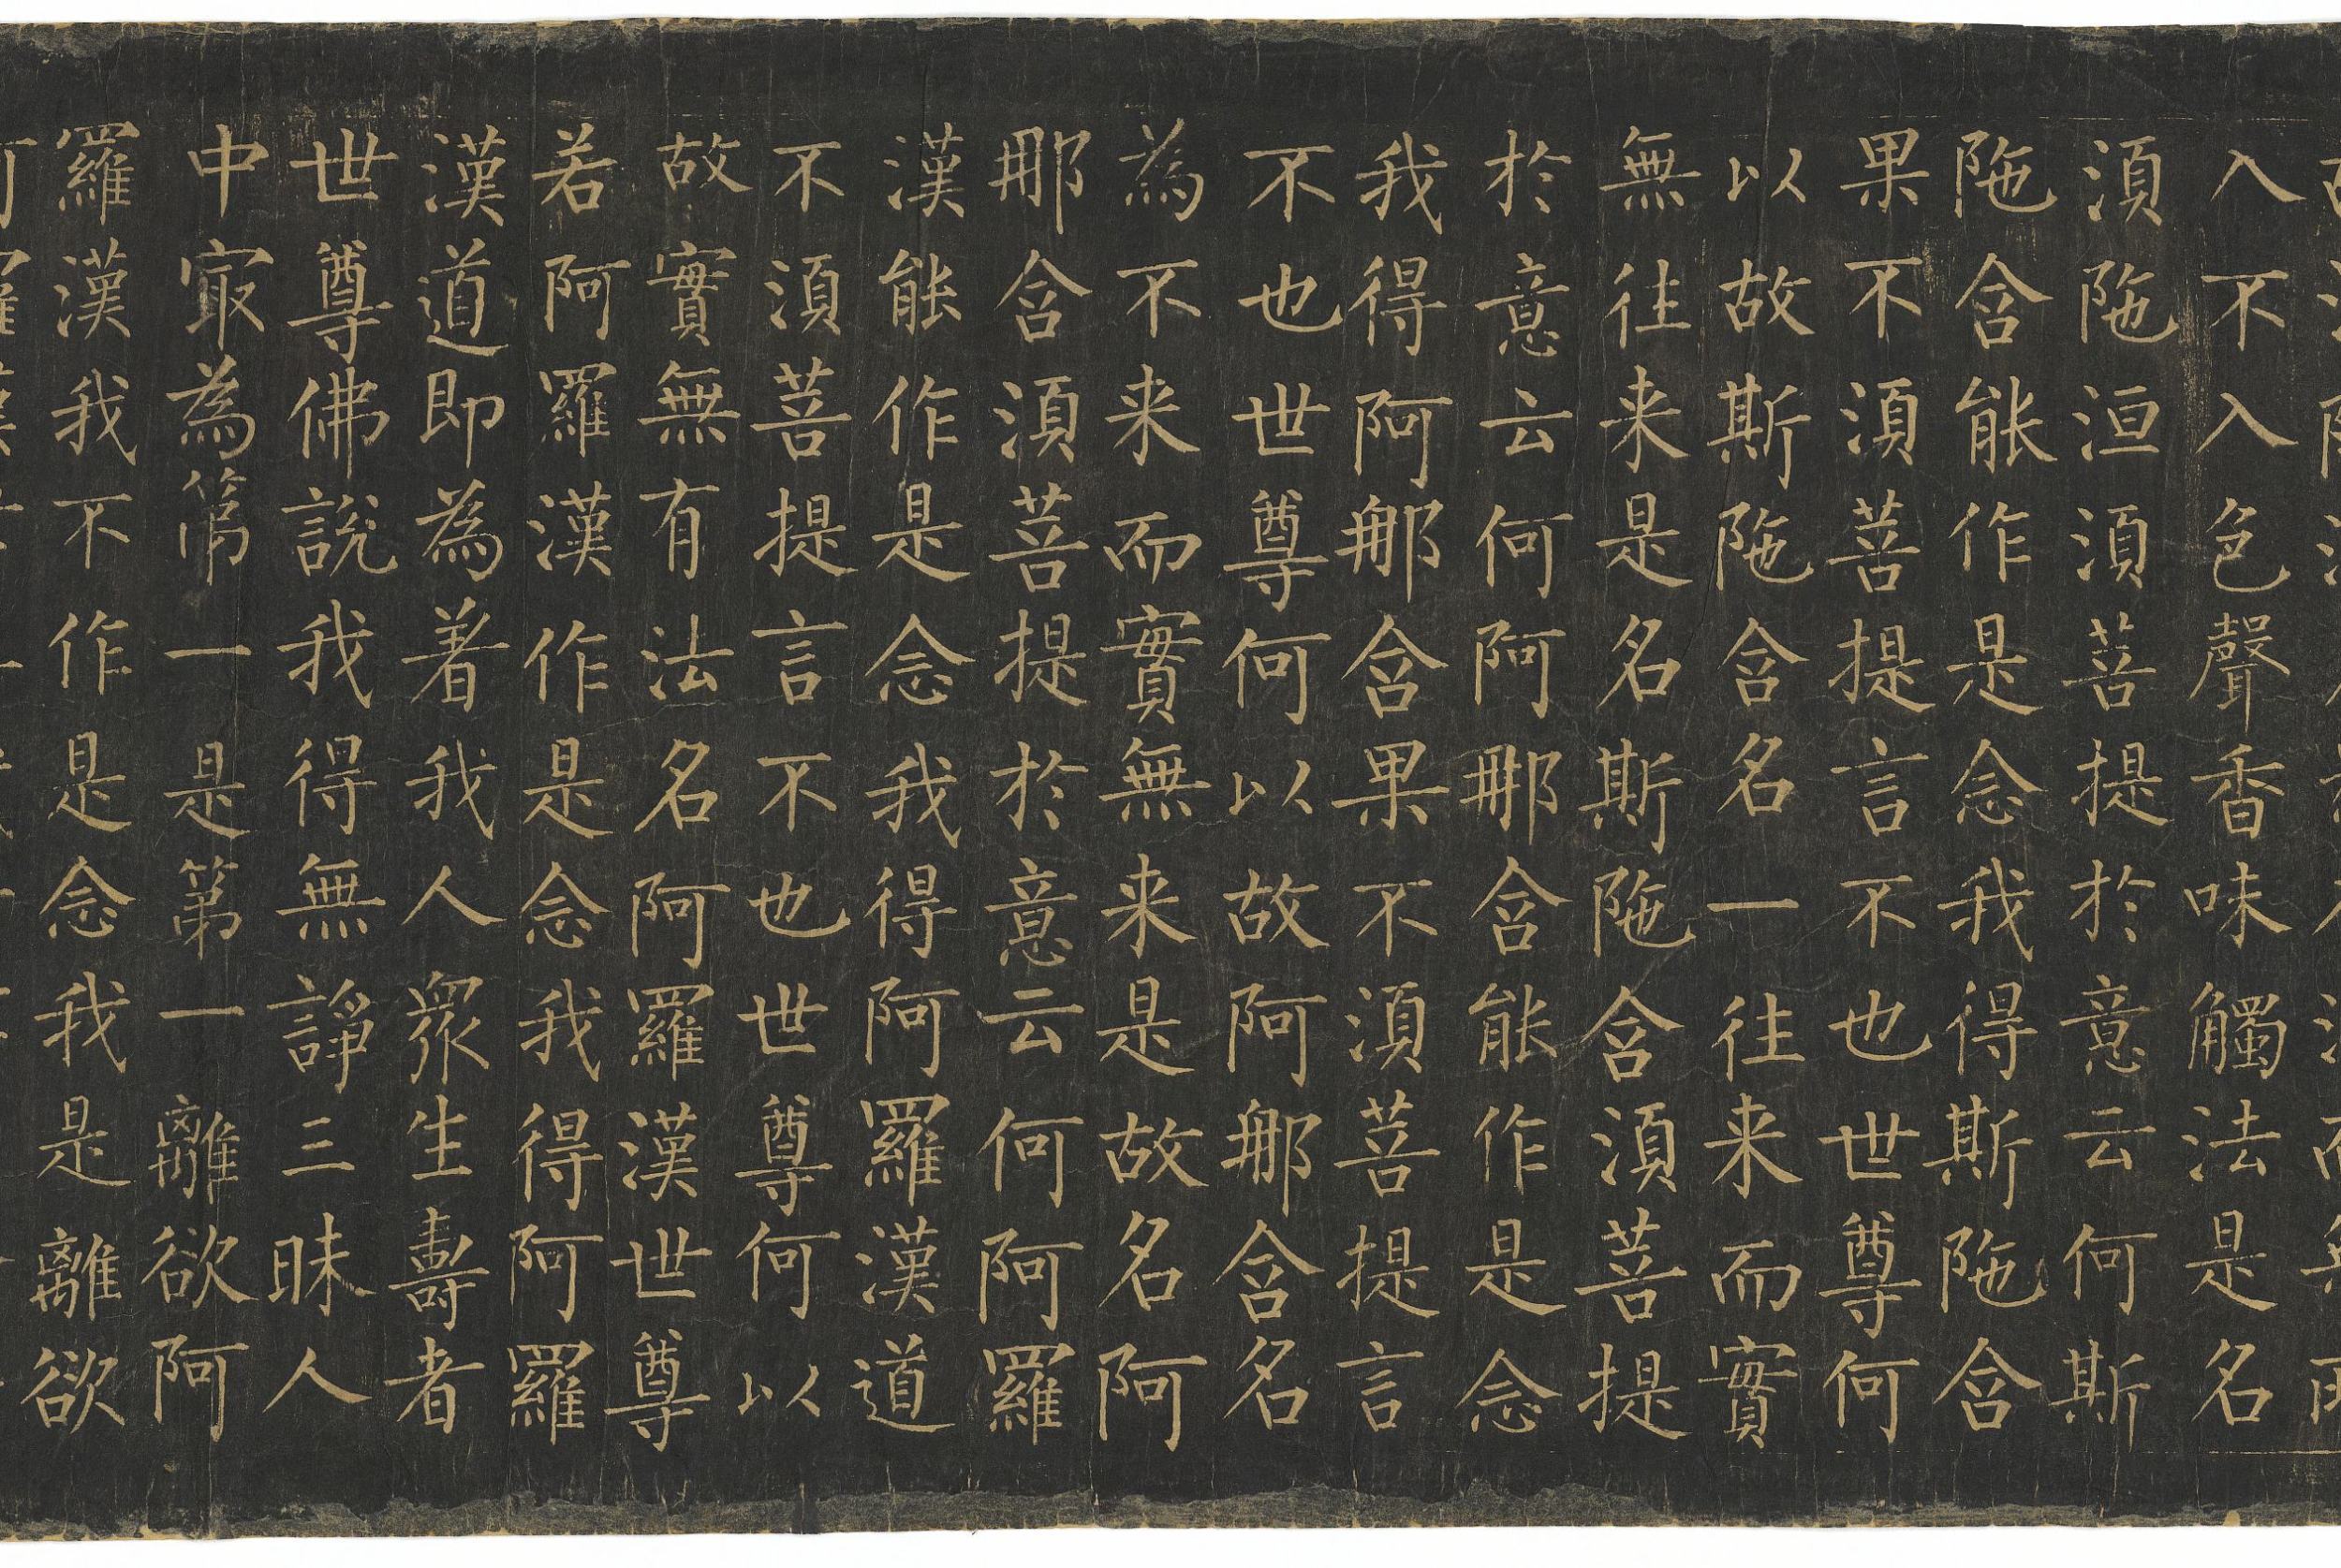 入不入色聲香味觸法是名
須陁洹須菩提於意云何斯
陁含能作是念我得斯陁含
果不須菩提言不也世尊何
以故斯陁含名一往来而實
無往来是名斯陁含須菩提
於意云何阿那含能作是念
我得阿那含果不須菩提言
不也世尊何以故阿那含名
為不来而實無来是故名阿
那含須菩提於意云何阿羅
漢能作是念我得阿羅漢道
不須菩提言不也世尊何以
故實無有法名阿羅漢世尊
若阿羅漢作是念我得阿羅
漢道即為着我人衆生壽者
世尊佛說我得無諍三昧人
中冣為第一是第一離欲阿
羅漢我不作是念我是離欲